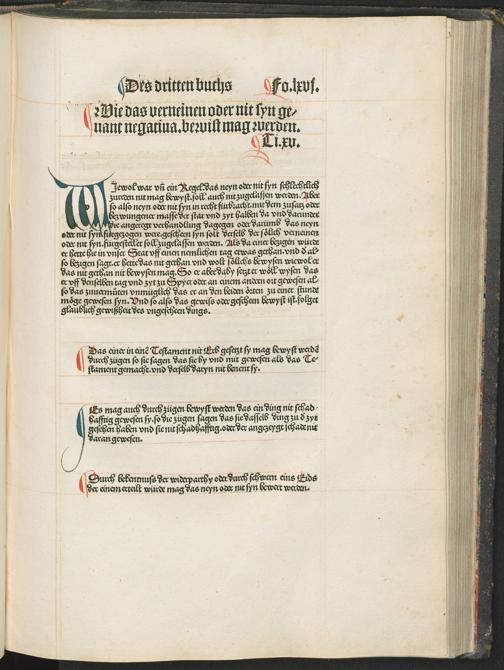 Des dritten buchs Fo.lxvj.
Wie das verneinen oder nit syn ge-
nant negatiua. bewist mag werden.
Ti.xv.
WJewol war vñ ein Regel. das neyn oder nit syn schlechtlich
zureden nit mag bewyst. soll auch nit zugelassen werden. Aber
so also neyn oder nit syn in recht fürbracht. mit dem zusatz oder
bezwungener masse der stat vnd zyt halben da vnd darunder
die angeregt verhandlung dagegen oder darumb das neyn
oder nit syn fürgezogen were. gescheen syn solt derselb der sölich verneinen
oder nit syn. fürgestellet soll zugelassen werden. Als da einer bezigen würde
er hette hie in vnser Stat vff einen nemlichen tag etwas gethan. vnd d als-
so bezigen sagt. er hette das nit gethan vnd wolt söllichs bewysen wiewol er
das nit gethan nit bewysen mag. So er aber daby setzt er wöll wysen das
er vff denselben tag vnd zyt zu Spyer oder an einem andern ort gewesen al-
so das zuuermüten vnmüglich das er an den beiden örten zu einer stund
möge gewesen syn. Vnd so also das gewiß oder gescheen bewyst ist. folget
glaublich gewißheit des vngescheen dings.
Das einer in einē Testament nit Erb gesetzt sy mag bewyst werdē
durch zügen so sie sagen das sie by vnd mit gewesen als das Te-
stament gemacht. vnd derselb daryn nit benent sy.
Es mag auch durch zügen bewyst werden das ein ding nit schad-
hafftig gewesen sy. so die zügen sagen das sie dasselb ding zu d zyt
gesehen haben vnd sie nit schadhafftig. oder der angezeygt schade nit
daran gewesen.
Durch bekentnuß der widerparthy oder durch schwern eins Eids
der einem erteilt würde mag das neyn oder nit syn bewert werden.